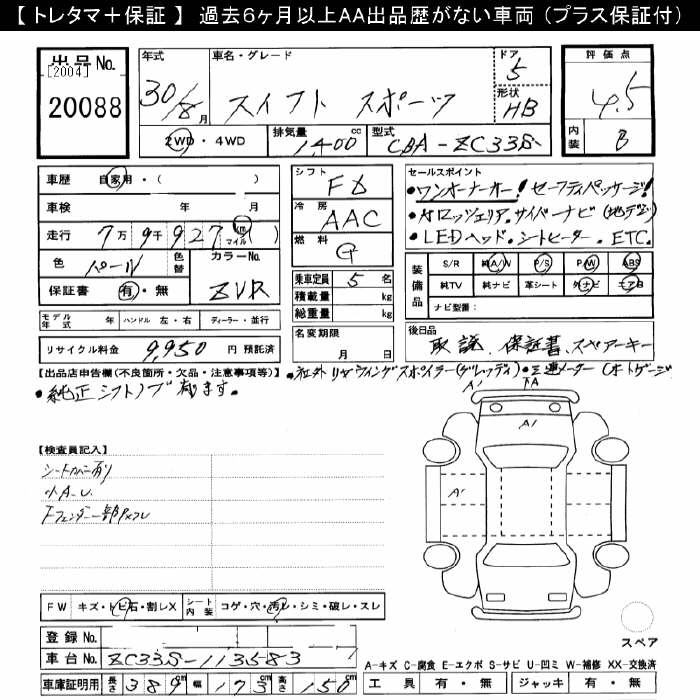 【 トレタマ＋保証 】 過去6ヶ月以上AA出品歴がない車両（プラス保証付）
出品No.
[2004]
20088
年式
車名・グレード
ドア
30/8月
スイフト スポーツ
5
形状
HB
2WD・4WD
排気量
1,400cc
型式
CBA-ZC33S
評価点
4.5
内装
B
車歴 自家用・（ ）
車検 年 月
走行 7万9千927km
マイル
色 パール
色替
カラーNo.
ZVR
保証書 有・無
モデル年式 年 ハンドル 左・右 ディーラー・並行
リサイクル料金 9,950 円 預託済
シフト
F6
冷房
AAC
燃料
G
乗車定員 5 名
積載量 kg
総重量 kg
名変期限
月 日
セールスポイント
・ワンオーナー! セーフティパッケージ!
・カロッツェリア サイバーナビ(地デジ)
・LEDヘッド・シートヒーター. ETC.
装備品
S/R 純A/W P/S P/W ABS
純TV 純ナビ 革シート 外ナビ エアB
ナビ型番:
後日品
取説、保証書、スペアキー
【出品店申告欄(不良箇所・欠品・注意事項等)】
・社外リヤウィングスポイラー(グレッディ)・三連メーター(オートゲージ
・純正シフトノブ有ります。
【検査員記入】
シートカバー有り
小A.U.
A1
A
A1
A1
FW キズ・トビ石・割レX
シート内装
コゲ・穴・汚レ・シミ・破レ・スレ
登録No.
車台No. ZC33S-113583
7
車庫証明用 長さ 389cm 幅 173cm 高さ 150cm
スペア
A-キズ C-腐食 E-エクボ S-サビ U-凹ミ W-補修 XX-交換済
工具 有・無 ジャッキ 有・無